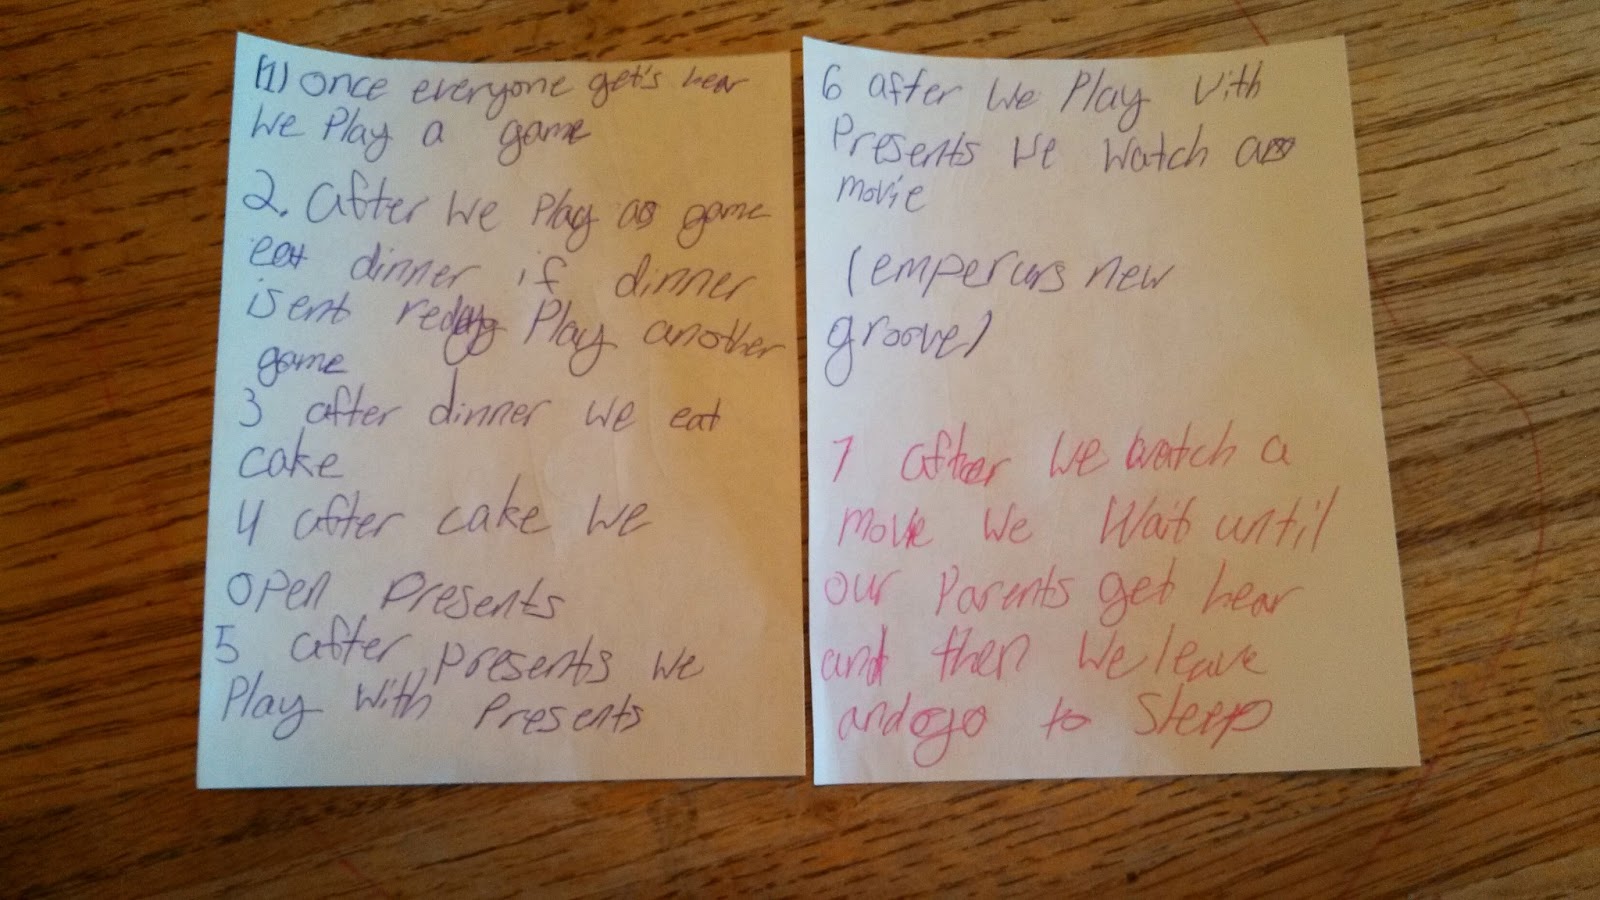 (1) Once everyone get's hear
we Play a game
2. after we Play a game
eat dinner if dinner
isent redy Play another
game
3 after dinner we eat
cake
4 after cake we
open presents
5 after presents we
Play with Presents
6 after we Play with
Presents we watch a
movie
(emperurs new
groove)
7 after we watch a
movie we Wait until
our parents get hear
and then we leave
and go to Sleep